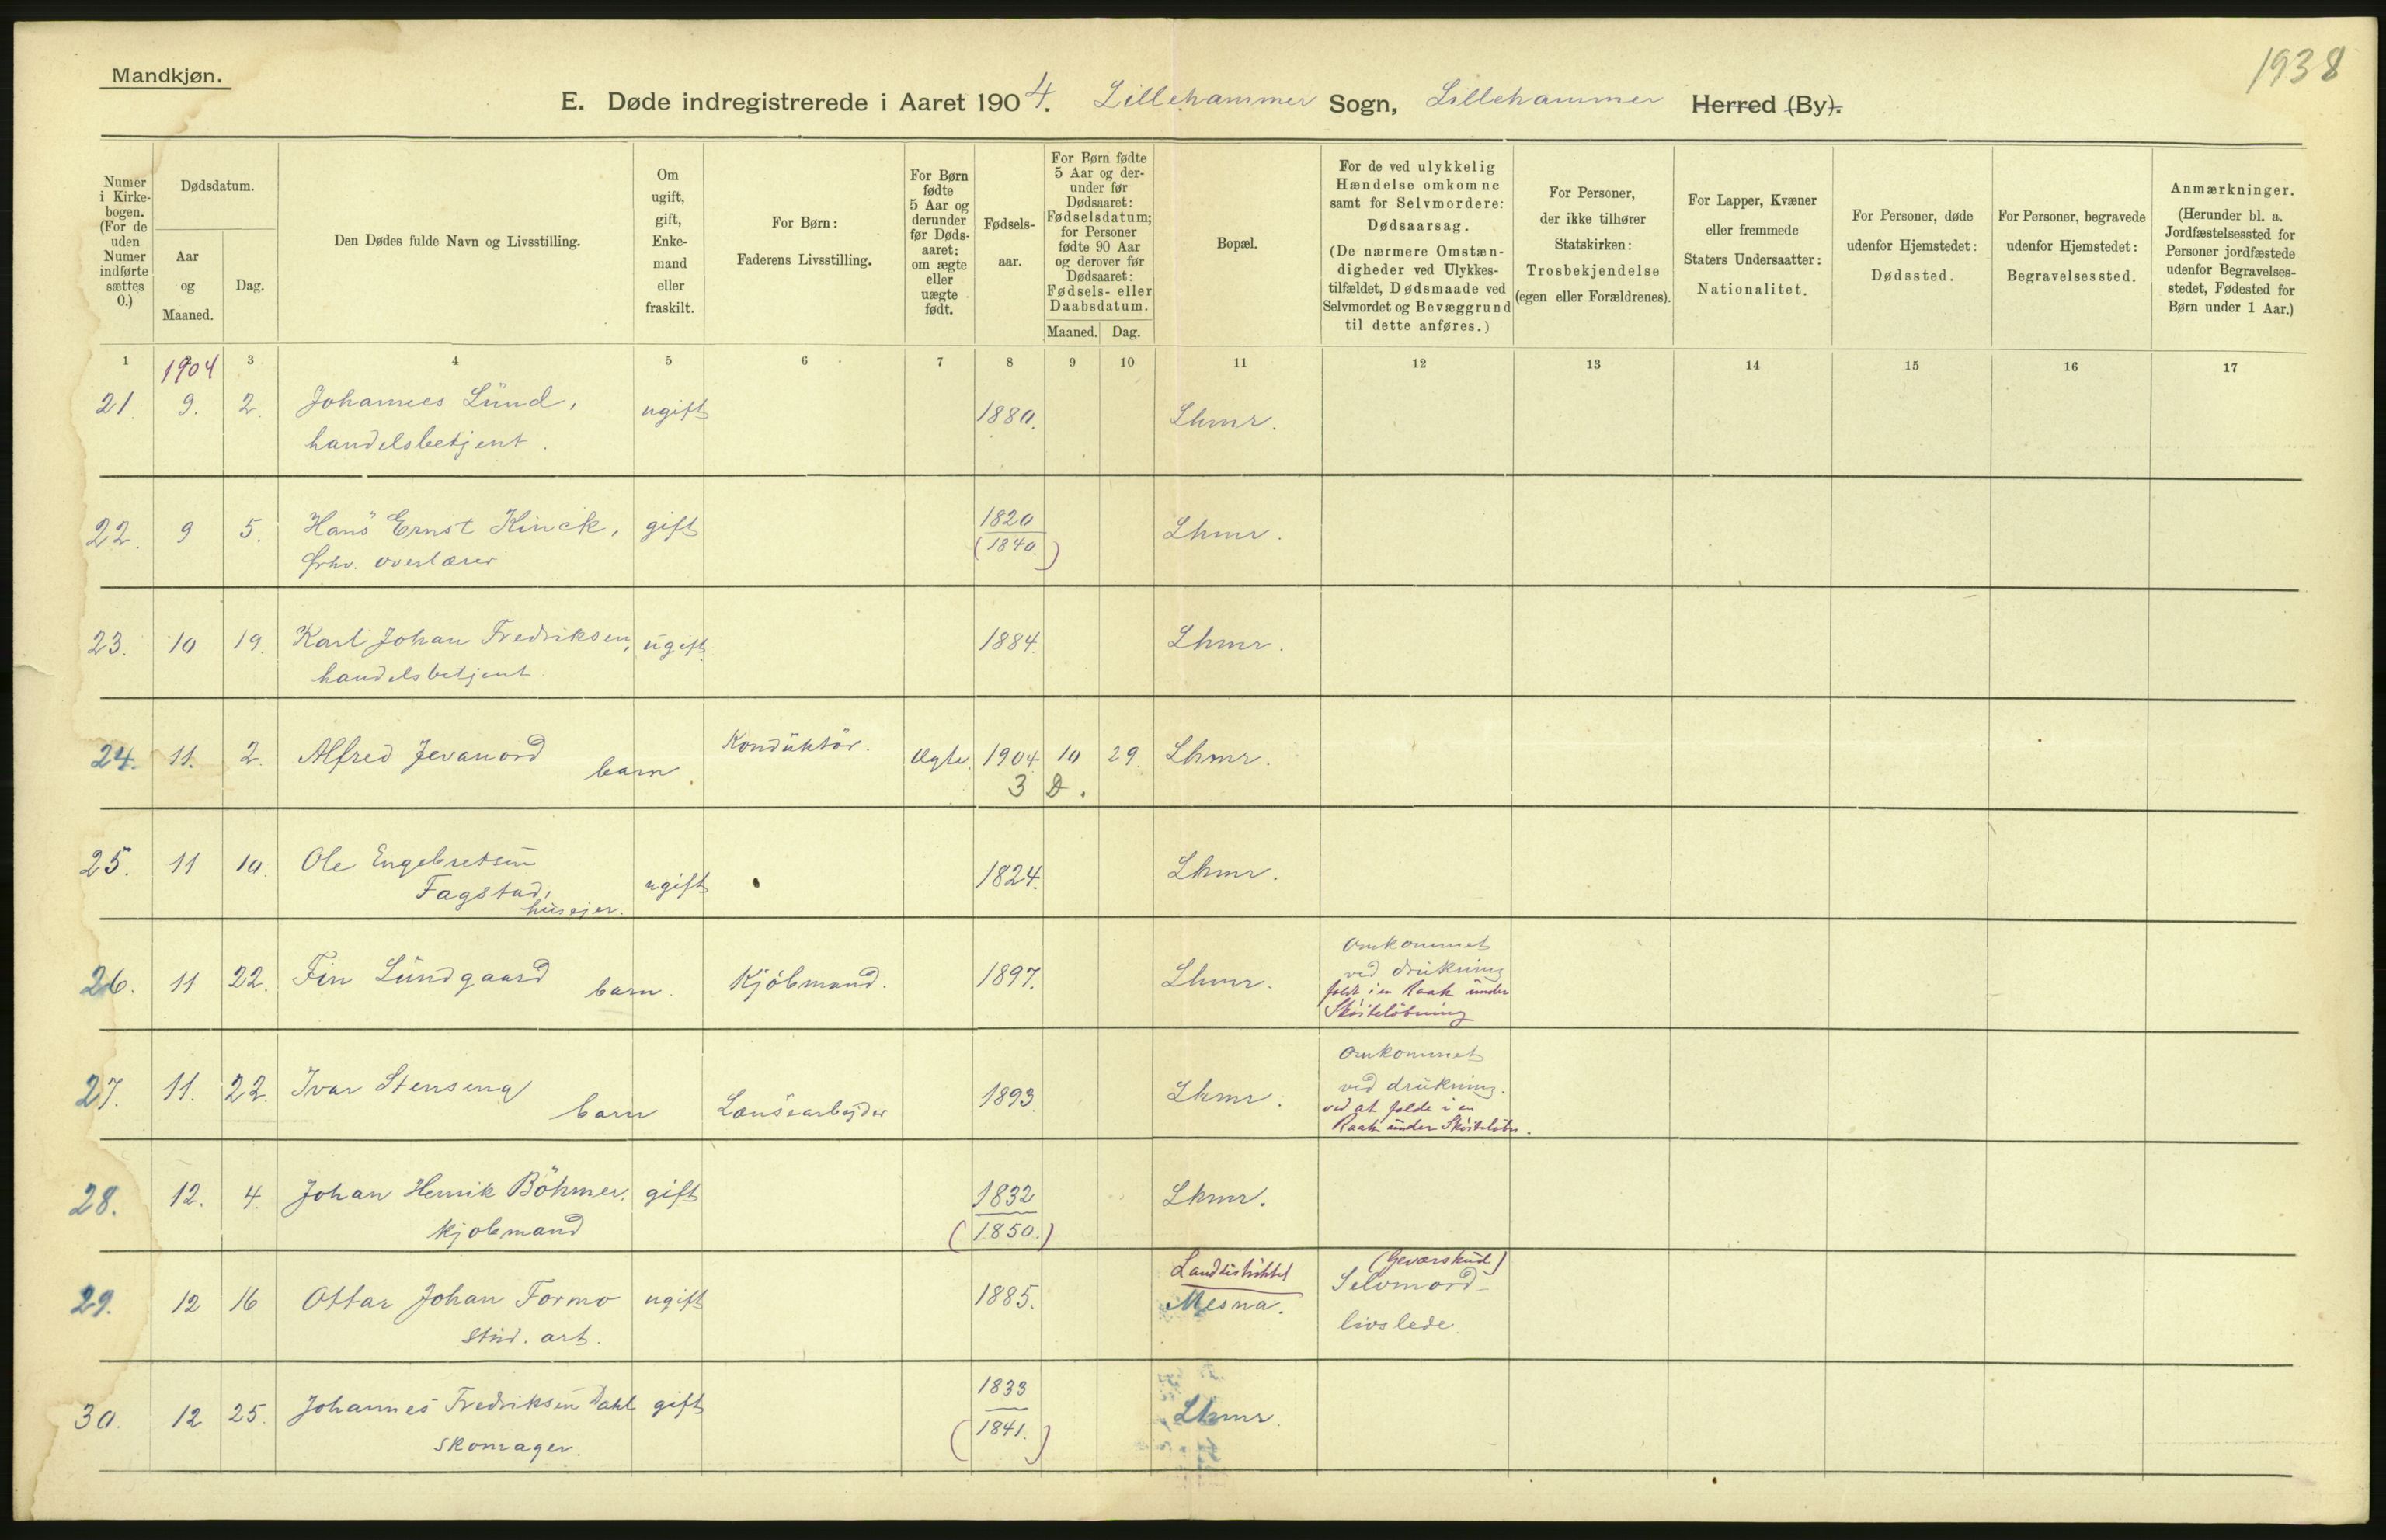 1938
Mandkjøn.
E. Døde indregistrerede i Aaret 1904. Lillehammer Sogn, Lillehammer Herred (By).
Numer i Kirke-bogen. (For de uden Numer indførte sættes 0.)
Dødsdatum.
Aar og Maaned.
Dag.
Den Dødes fulde Navn og Livsstilling.
Om ugift, gift, Enke-mand eller fraskilt.
For Børn: Faderens Livsstilling.
For Børn fødte 5 Aar og derunder før Døds-aaret: om ægte eller uægte født.
Fødsels-aar.
For Børn fødte 5 Aar og der-under før Dødsaaret: Fødselsdatum; for Personer fødte 90 Aar og derover før Dødsaaret: Fødsels- eller Daabsdatum.
Maaned. Dag.
Bopæl.
For de ved ulykkelig Hændelse omkomne samt for Selvmordere: Dødsaarsag. (De nærmere Omstæn-digheder ved Ulykkes-tilfældet, Dødsmaade ved Selvmordet og Bevæggrund til dette anføres.)
For Personer, der ikke tilhører Statskirken: Trosbekjendelse (egen eller Forældrenes).
For Lapper, Kvæner eller fremmede Staters Undersaatter: Nationalitet.
For Personer, døde udenfor Hjemstedet: Dødssted.
For Personer, begravede udenfor Hjemstedet: Begravelsessted.
Anmærkninger. (Herunder bl. a. Jordfæstelsessted for Personer jordfæstede udenfor Begravelses-stedet, Fødested for Børn under 1 Aar.)
1 1904 3 4 5 6 7 8 9 10 11 12 13 14 15 16 17
21 9. 2. Johannes Lund, ugift 1880. Lhmr.
handelsbetjent.
22. 9 5. Hans Ernst Kinck, gift 1820 Lhmr.
fhv. overlærer (1840.)
23. 10 19. Karl Johan Fredriksen, ugift 1884. Lhmr.
handelsbetjent
24. 11. 2. Alfred Jevanord barn. Konduktör. Ægte. 1904 10 29. Lhmr.
3 D.
25. 11 10. Ole Engebretsen
Fagstad, ugift 1824. Lhmr.
husejer.
26. 11 22. Fin Lundgaard barn. Kjöbmand. 1897. Lhmr. Omkommet
ved drukning
faldt i en Raak under
Sköiteløbning
27. 11. 22. Ivar Stenseng barn Lænsearbejder 1893. Lhmr. Omkommet
ved drukning.
ved at falde i en
Raak under Skøiteløbn.
28. 12. 4. Johan Henrik Böhmer. gift 1832 Lhmr.
kjøbmand (1850.)
29. 12 16 Ottar Johan Formo ugift 1885. Landdistriktet (Geværskud)
stud. art. Mesna. Selvmord-
livslede.
30. 12 25. Johannes Fredriksen Dahl gift 1833 Lhmr.
skomager. (1841.)